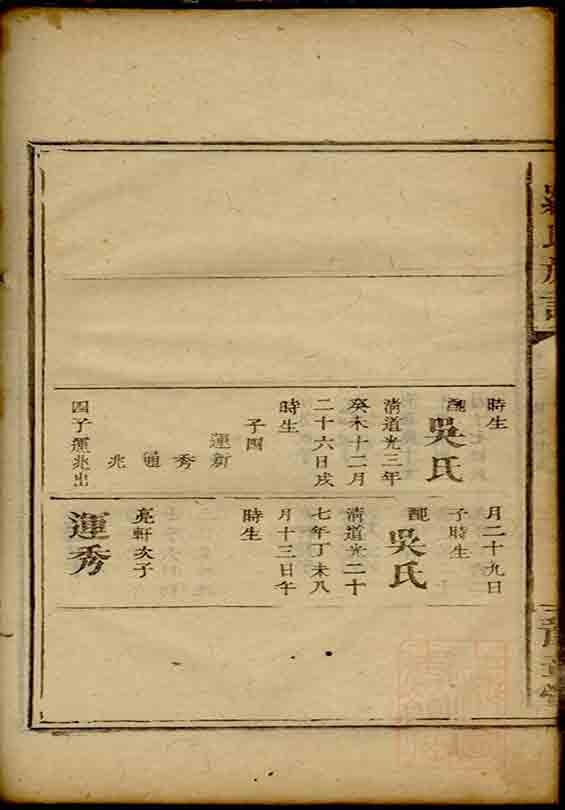 時生
配吳氏
清道光三年
癸未十二月
二十六日戌
時生
子四
運新
秀
通
兆
四子運兆出
月二十九日
子時生
配吳氏
清道光二十
七年丁未八
月十三日午
時生
亮軒次子
運秀